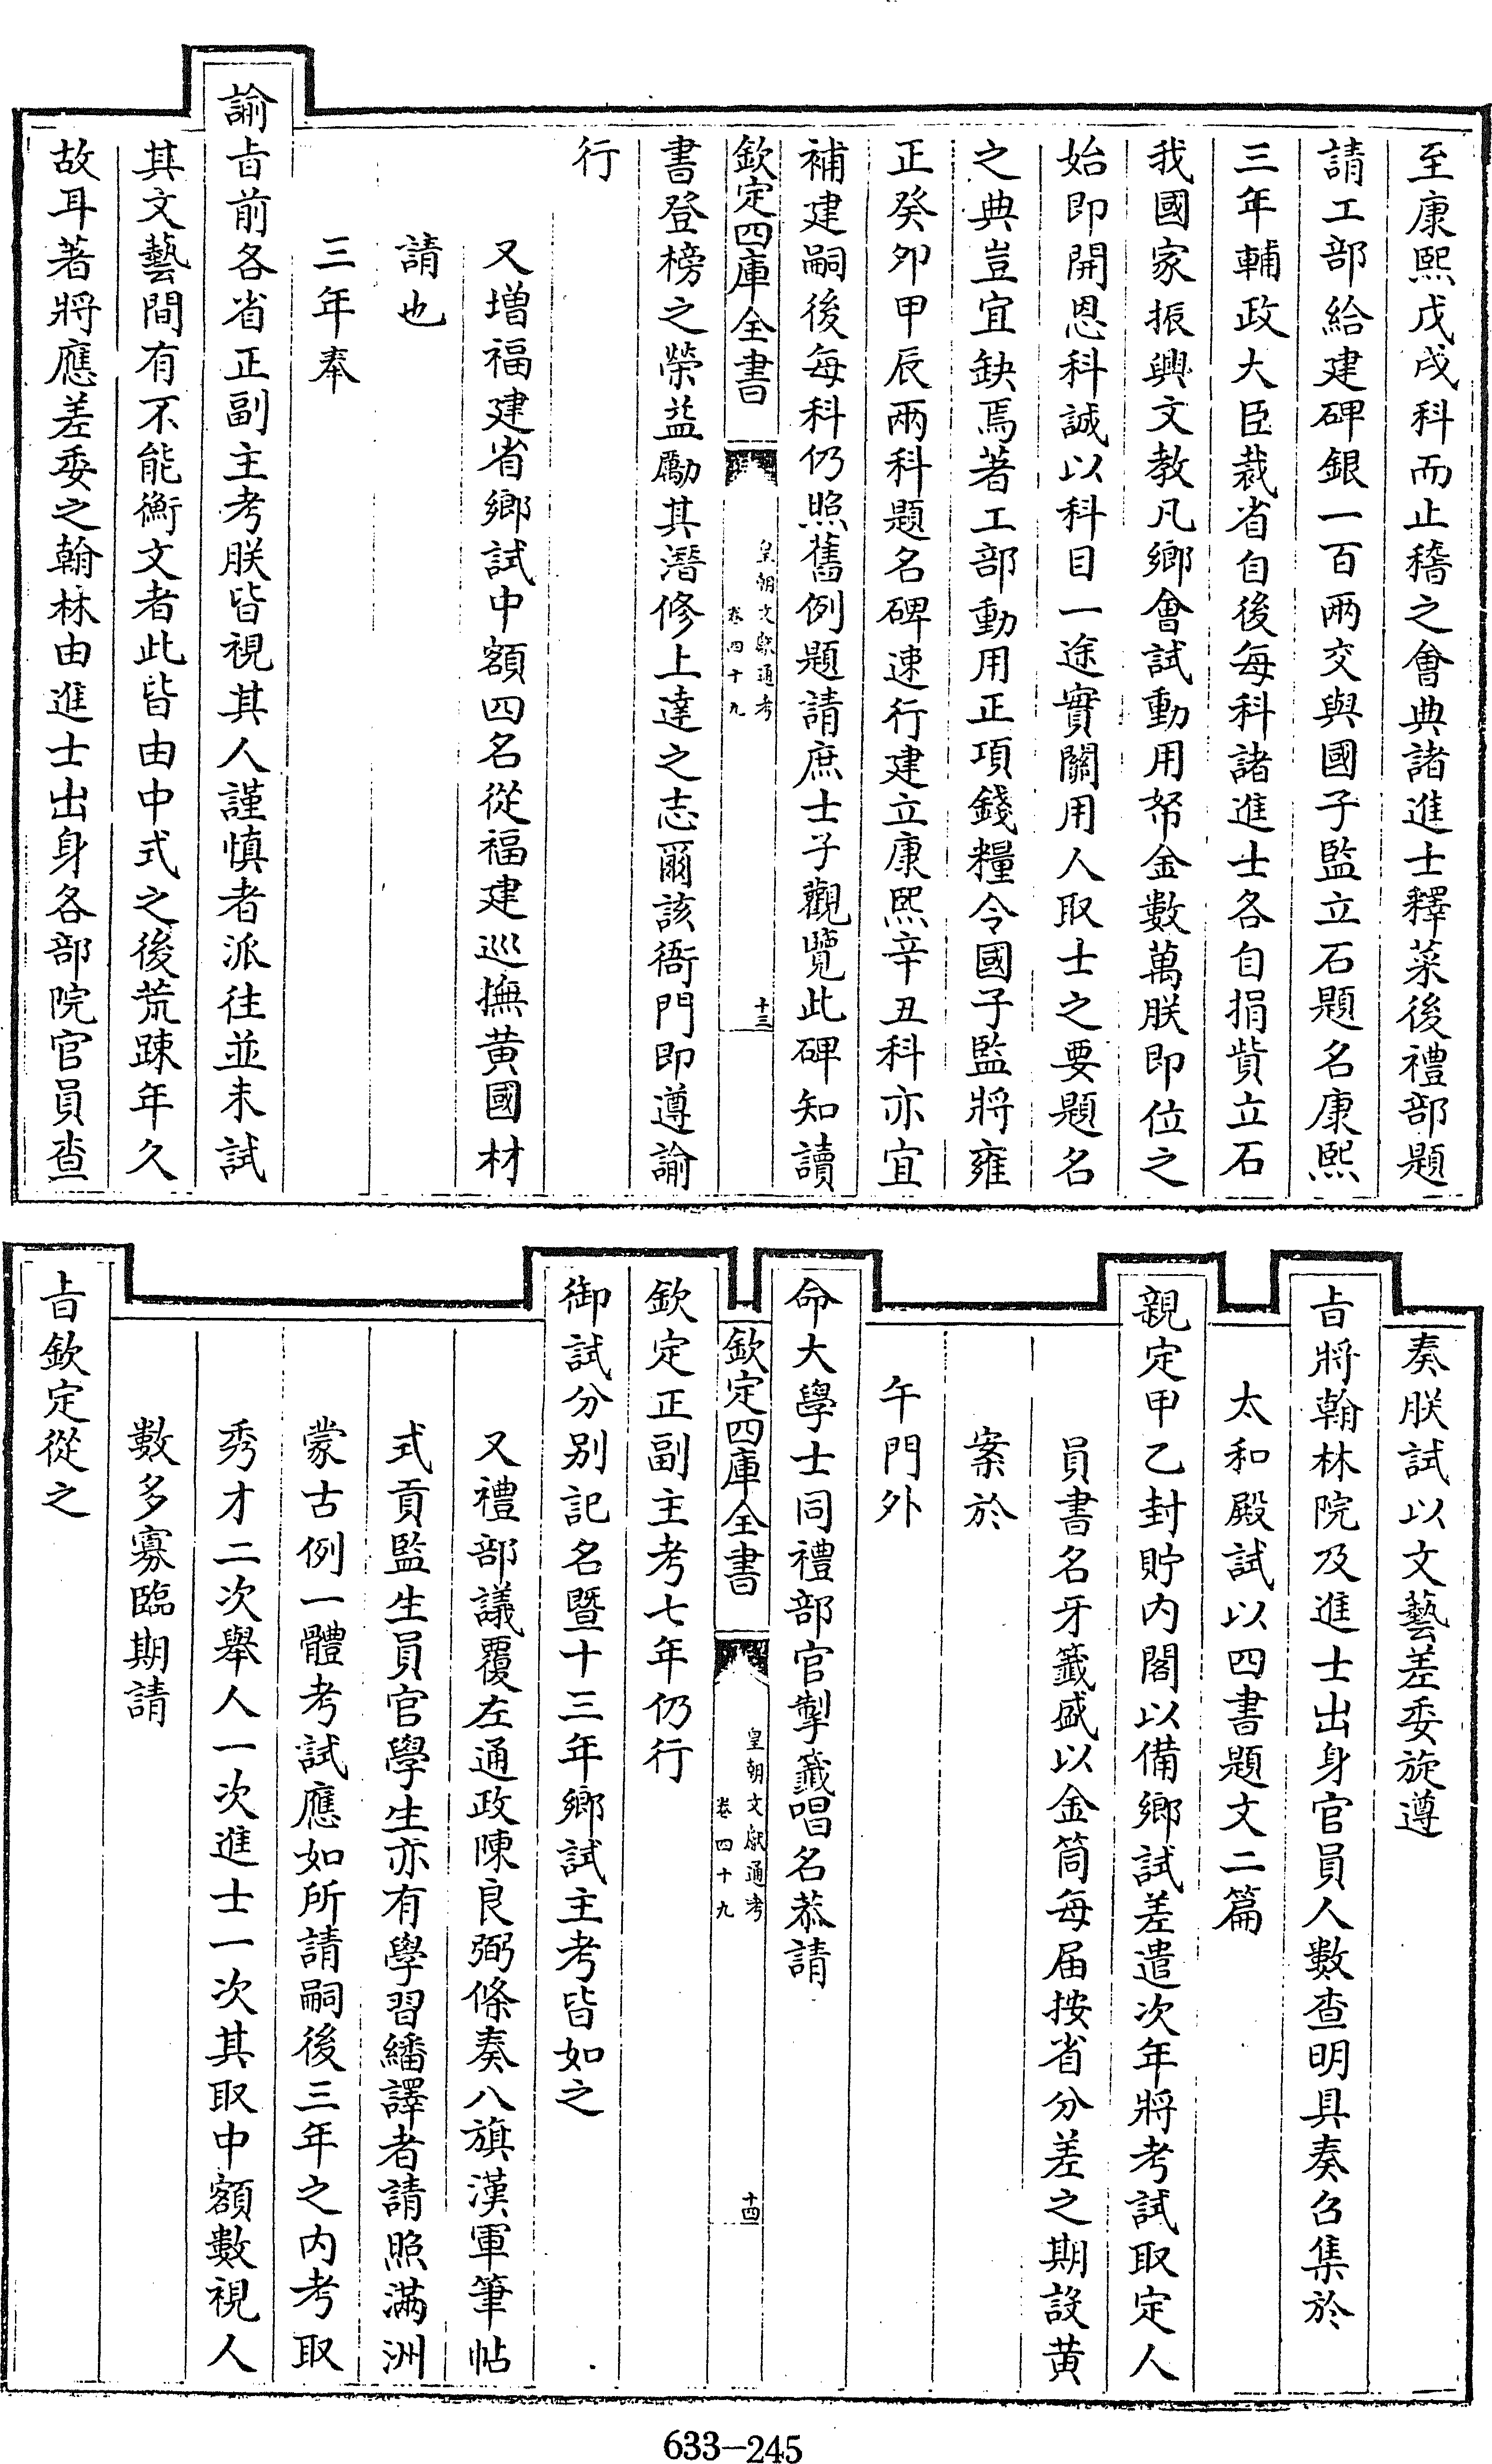 至康熙戊戌科而止稽之會典諸進士釋菜後禮部題
請工部給建碑銀一百兩交與國子監立石題名康熙
三年輔政大臣裁省自後每科諸進士各自捐貲立石
我國家振興文教凡鄉會試動用帑金數萬朕即位之
始即開恩科誠以科目一途實關用人取士之要題名
之典豈宜缺焉著工部動用正項錢糧令國子監將雍
正癸夘甲辰兩科題名碑速行建立康熙辛丑科亦宜
補建嗣後每科仍照舊例題請庶士子觀覽此碑知讀
欽定四庫全書
皇朝文獻通考
卷四十九
十三
書登榜之榮益勵其潛修上達之志爾該衙門即遵諭
行
又增福建省鄉試中額四名從福建巡撫黄國材
請也
三年奉
諭㫖前各省正副主考朕皆視其人謹慎者派往並未試
其文藝間有不能衡文者此皆由中式之後荒踈年久
故耳著將應差委之翰林由進士出身各部院官員查
奏朕試以文藝差委旋遵
㫖將翰林院及進士出身官員人數查明具奏召集於
太和殿試以四書題文二篇
親定甲乙封貯内閣以備鄉試差遣次年將考試取定人
員書名牙籖盛以金筒每届按省分差之期設黄
案於
午門外
命大學士同禮部官掣籖唱名恭請
欽定四庫全書
皇朝文獻通考
卷四十九
十四
欽定正副主考七年仍行
御試分别記名暨十三年鄉試主考皆如之
又禮部議覆左通政陳良弼條奏八旗漢軍筆帖
式貢監生員官學生亦有學習繙譯者請照滿洲
蒙古例一體考試應如所請嗣後三年之内考取
秀才二次舉人一次進士一次其取中額數視人
數多寡臨期請
㫖欽定從之
633-245